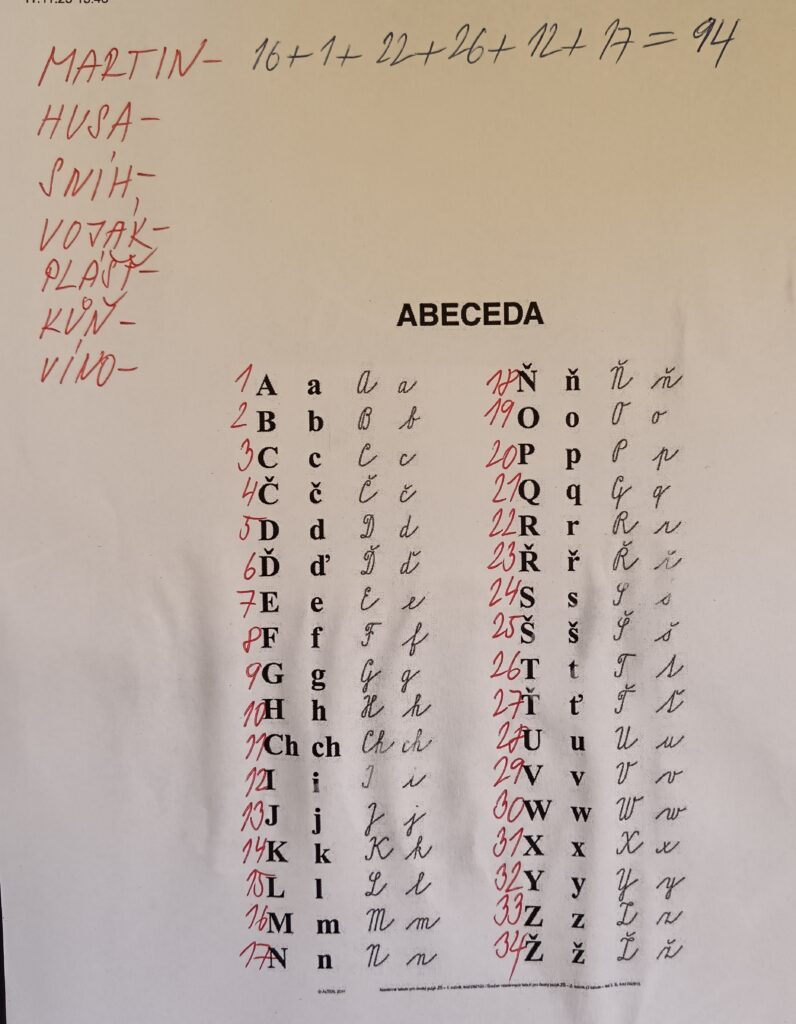 MARTIN- 16+1+22+26+12+17=94
HUSA-
SNÍH-
VOJÁK-
PLÁŠŤ-
KŮŇ-
VÍNO-
ABECEDA
1 A a A a
2 B b B b
3 C c C c
4 Č č Č č
5 D d D d
6 Ď ď Ď ď
7 E e E e
8 F f F f
9 G g G g
10 H h H h
11 Ch ch Ch ch
12 I i I i
13 J j J j
14 K k K k
15 L l L l
16 M m M m
17 N n N n
18 Ň ň Ň ň
19 O o O o
20 P p P p
21 Q q Q q
22 R r R r
23 Ř ř Ř ř
24 S s S s
25 Š š Š š
26 T t T t
27 Ť ť Ť ť
28 U u U u
29 V v V v
30 W w W w
31 X x X x
32 Y y Y y
33 Z z Z z
34 Ž ž Ž ž